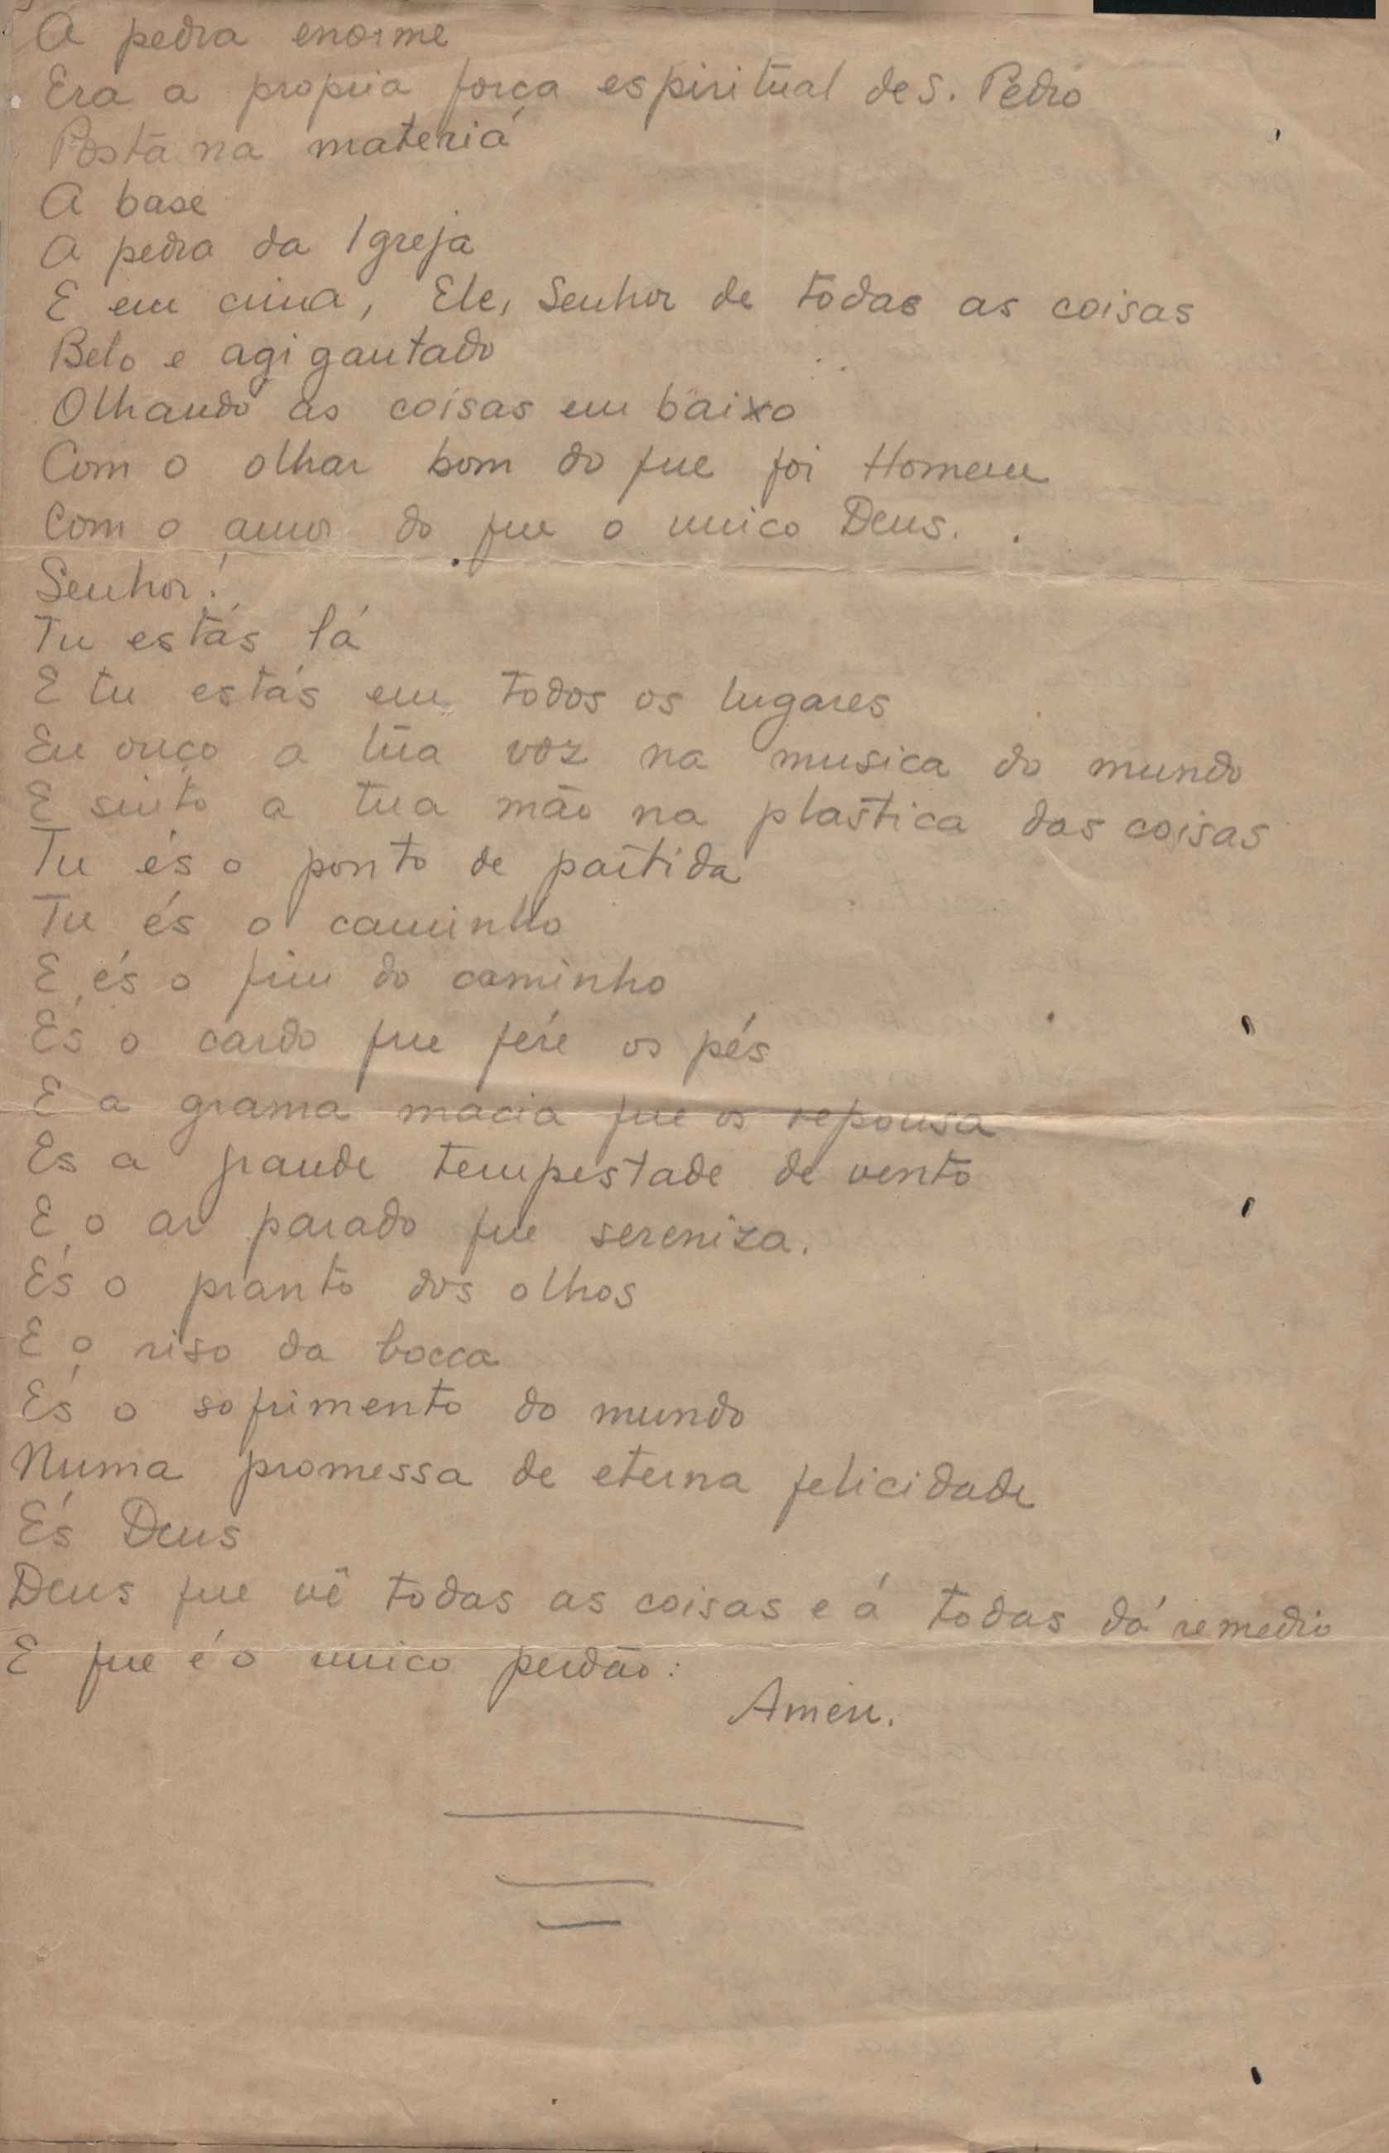 A pedra enorme
Era a propria força espiritual de S. Pedro
Posta na materia
A base
A pedra da Igreja
E em cima, Ele, Senhor de todas as coisas
Belo e agigantado
Olhando as coisas em baixo
Com o olhar bom do que foi Homem
Com o amor do que o unico Deus.
Senhor!
Tu estás lá
E tu estás em todos os lugares
Eu ouço a tua voz na musica do mundo
E sinto a tua mão na plastica das coisas
Tu és o ponto de partida
Tu és o caminho
E és o fim do caminho
És o cardo que fére os pés
E a grama macia que os repousa
És a grande tempestade de vento
E o ar parado que sereniza.
És o pranto dos olhos
E o riso da bocca
És o sofrimento do mundo
Numa promessa de eterna felicidade
És Deus
Deus que vê todas as coisas e á todas dá remedio
E que é o unico perdão:
Amen.